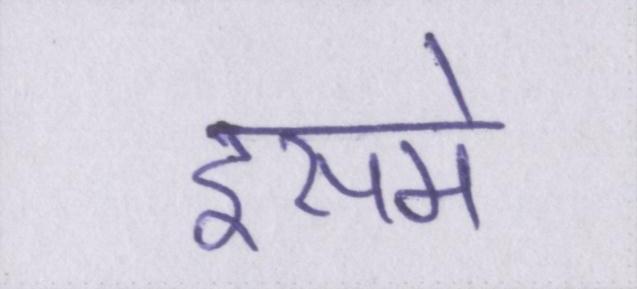 इसमे